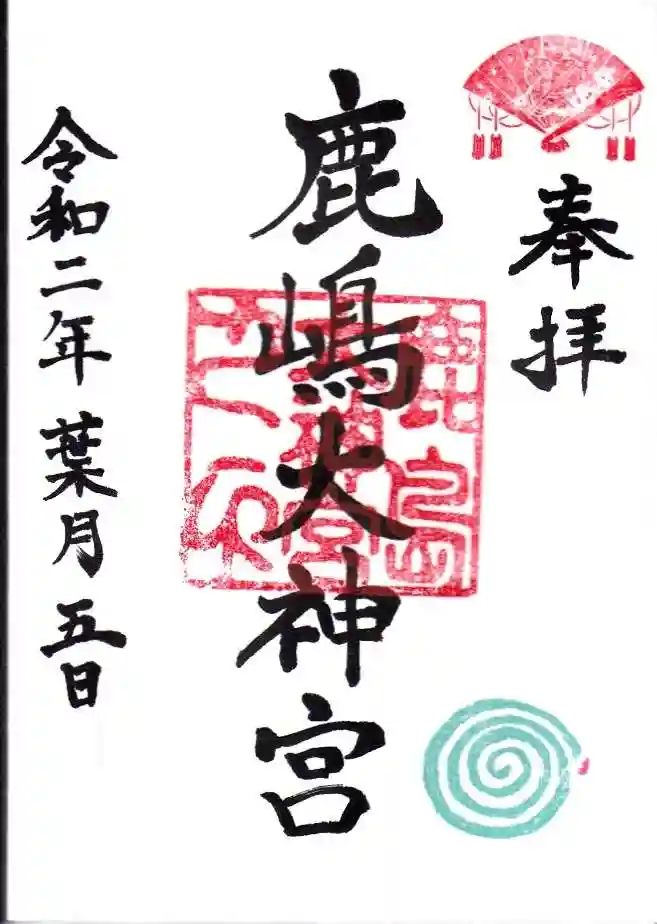 奉拝
鹿嶋大神宮
令和二年葉月五日